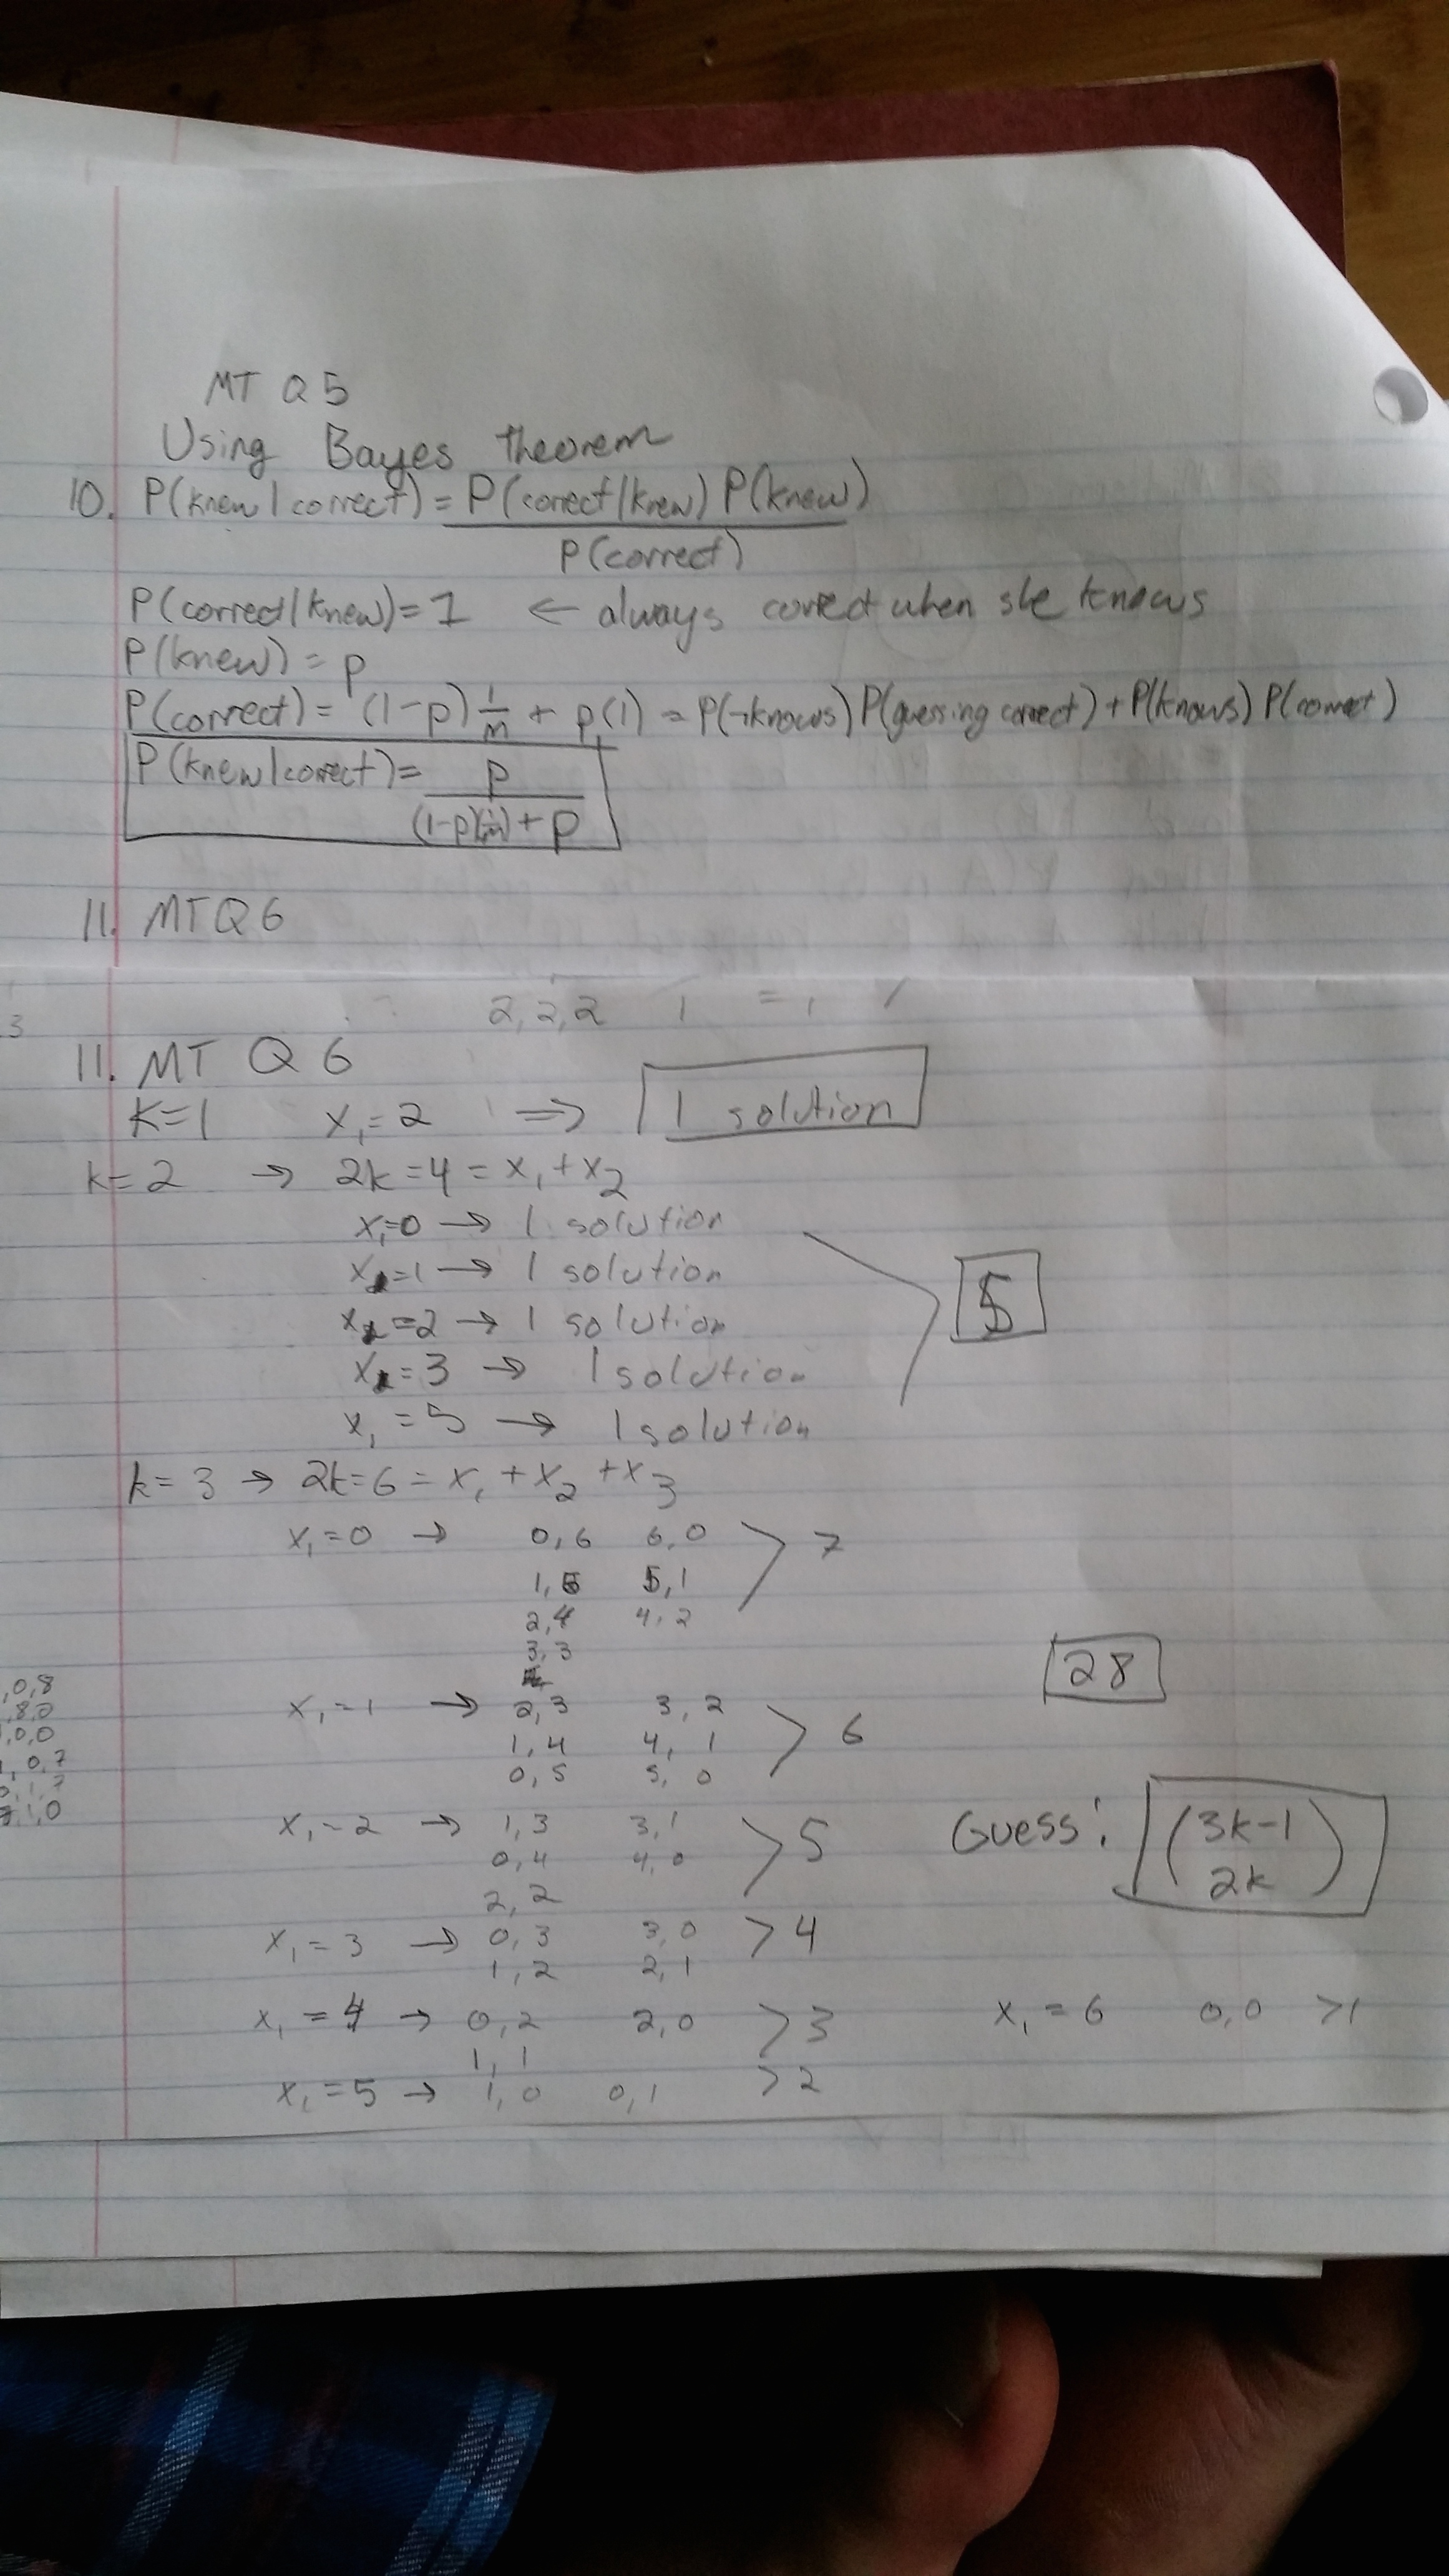 MT Q5
Using Bayes theorem
10. P(knew | correct) = P(correct | knew) P(knew)
P(correct)
P(correct | knew) = 1 ← always correct when she knows
P(knew) = p
P(correct) = (1-p) 1/m + p(1) = P(¬knows) P(guessing correct) + P(knows) P(correct)
P(knew | correct) = p
(1-p)(1/m) + p
11. MT Q6
2,2,2 1 = 1
3
11. MT Q 6
K=1 x₁=2 => 1 solution
k=2 → 2k=4=x₁+x₂
x₁=0 → 1 solution
x₁=1 → 1 solution
x₁=2 → 1 solution
x₁=3 → 1 solution
x₁=5 → 1 solution
5
k=3 → 2k=6=x₁+x₂+x₃
x₁=0 → 0,6 6,0 > 7
1,5 5,1
2,4 4,2
3,3
28
x₁=1 → 2,3 3,2 > 6
1,4 4,1
0,5 5,0
x₁=2 → 1,3 3,1 > 5
0,4 4,0
2,2
Guess: (3k-1
2k)
x₁=3 → 0,3 3,0 > 4
1,2 2,1
x₁=4 → 0,2 2,0 > 3
1,1
x₁=6 0,0 >1
x₁=5 → 1,0 0,1 > 2
,0,8
,8,0
,0,0
, 0,7
,1,7
,1,0